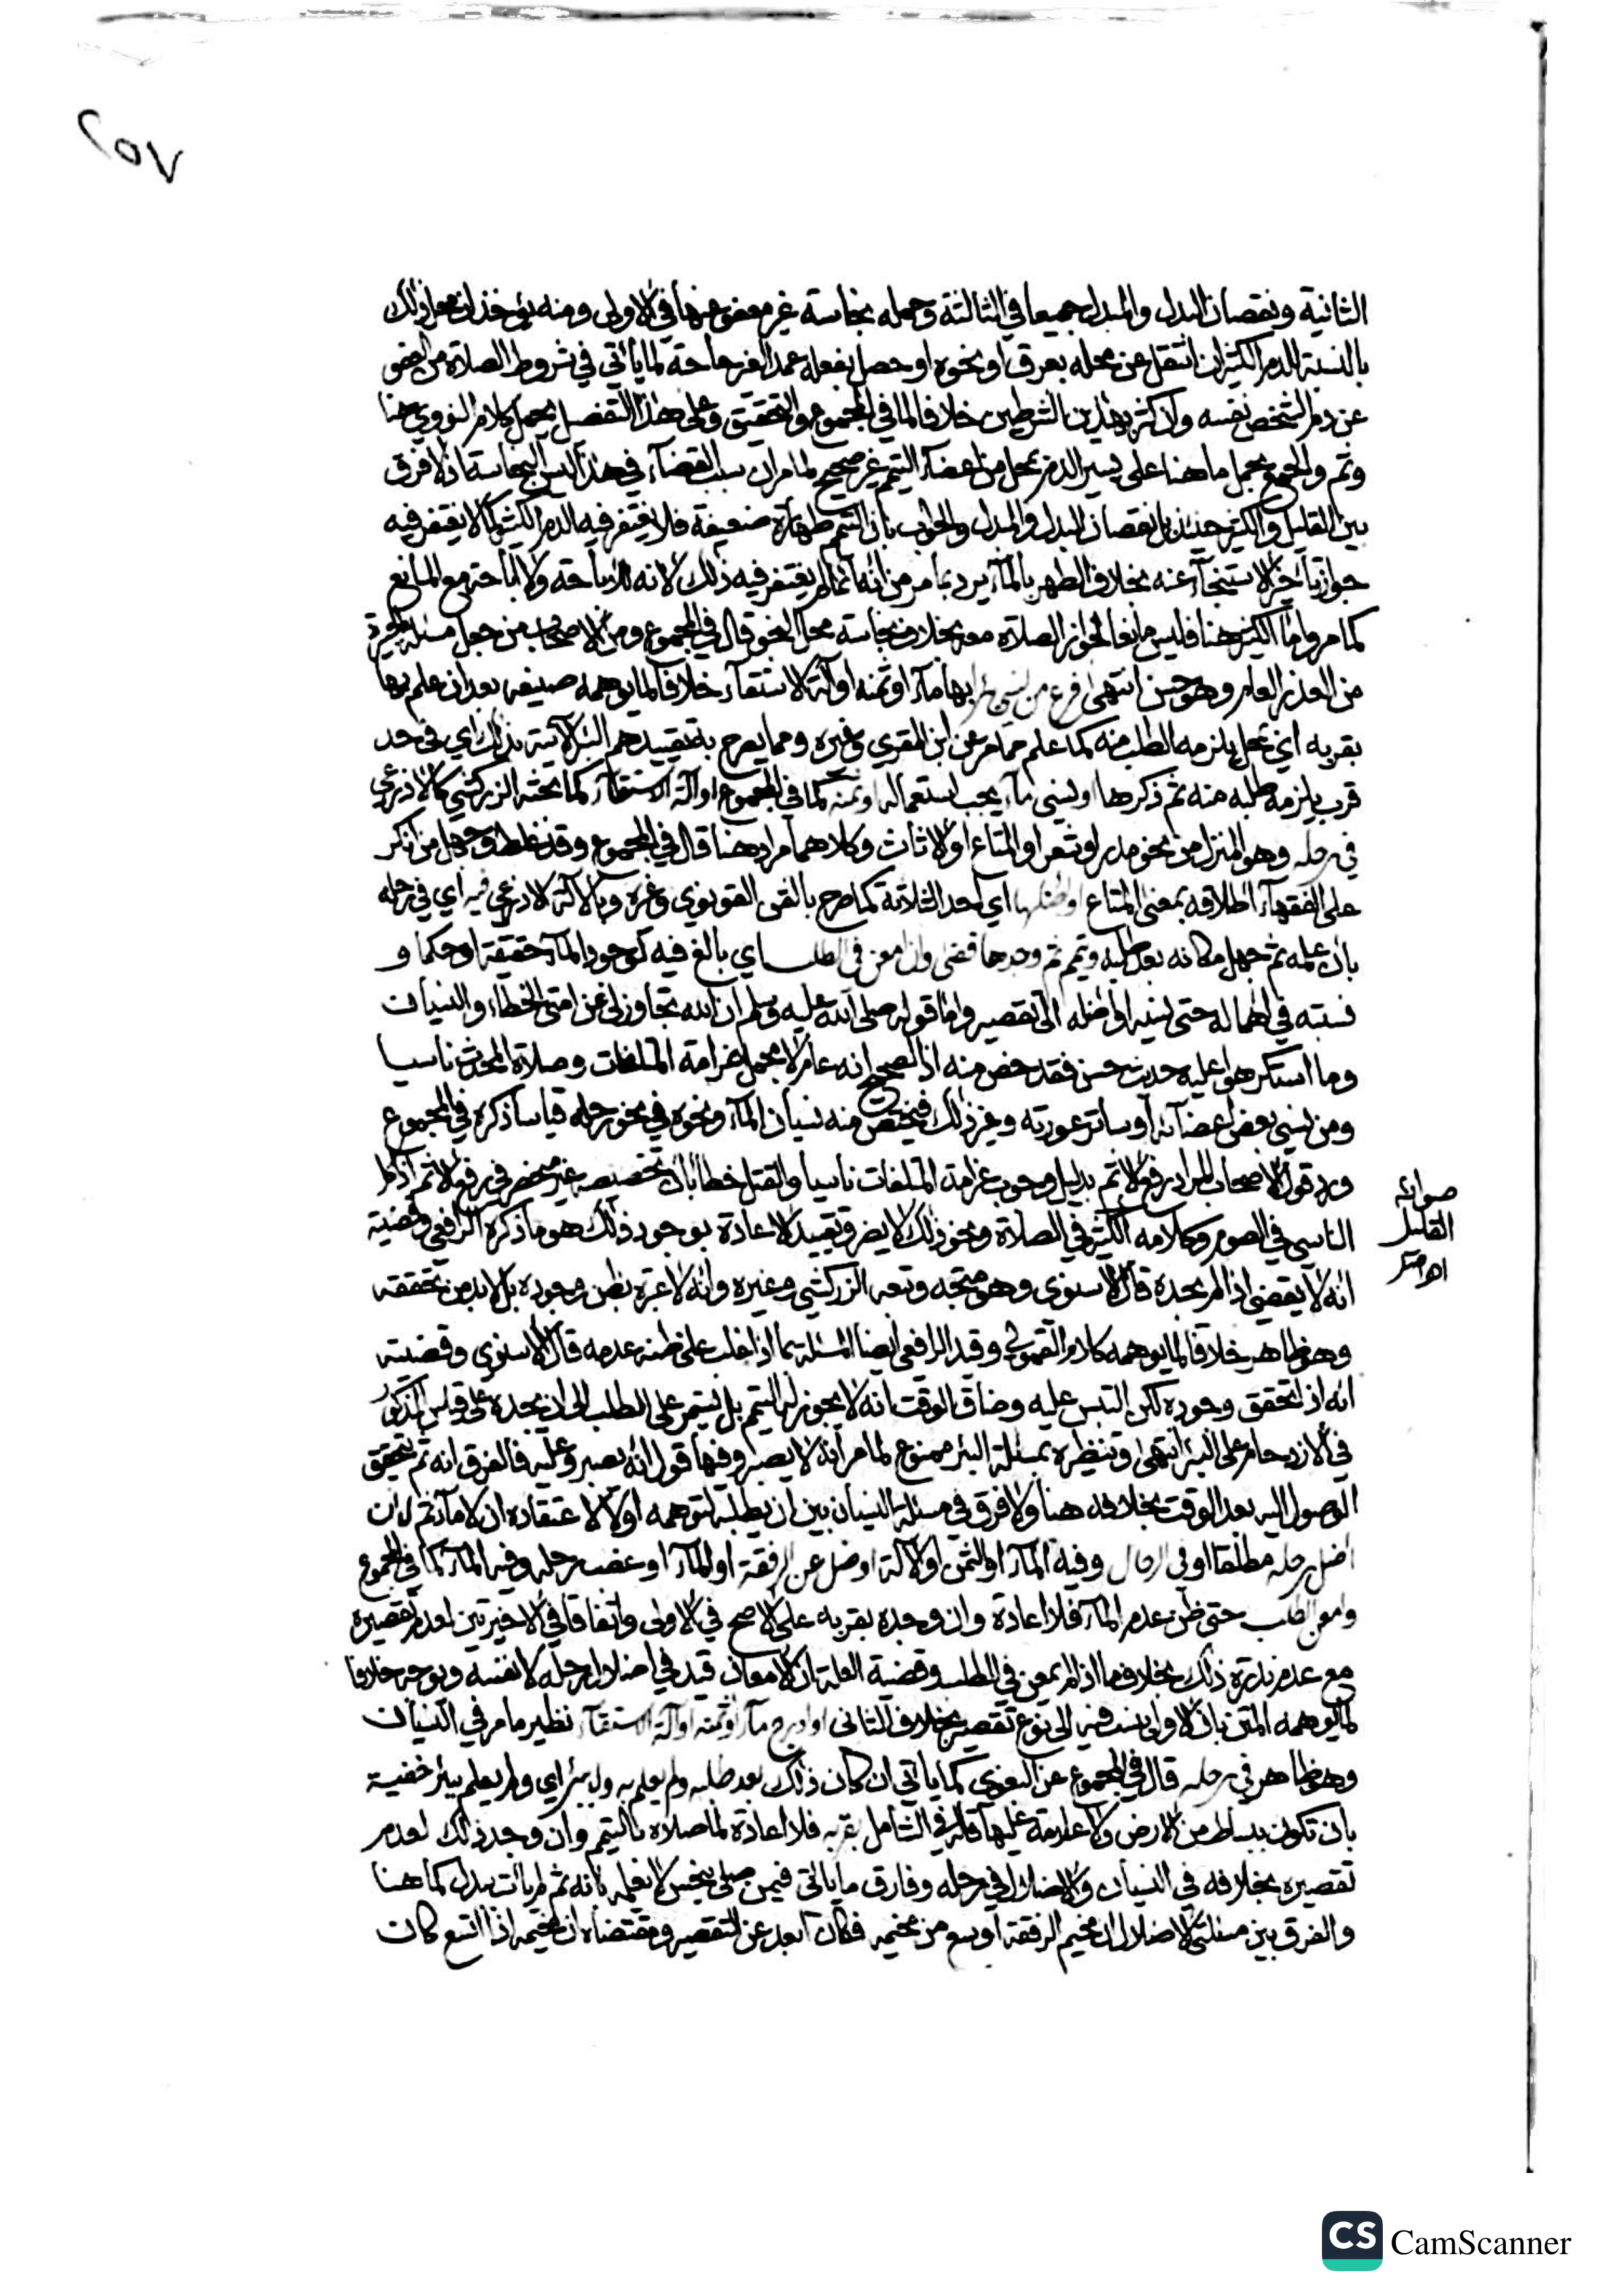 ٢٥٧
الثانية ونقصان البدل والمبدل جميعا في الثالثة وحمله نجاسة غير معفو عنها في الاولى ومنه يؤخذ ان محل ذلك
بالنسبة للدم الكثير ان انتقل عن محله بعرق او نحوه او حصل بفعله عمدا لغير حاجة لما يأتي في شروط الصلاة من العفو
عن دم الشخص نفسه وان كثر بهذين الشرطين خلافا لما في المجموع والتحقيق وعلى هذا التفصيل يحمل كلام النووي هنا
وثم والجمع بحمل ما هنا على يسير الدم بمحل من اعضاء التيمم غير صحيح لما مر ان سبب القضاء في هذا ليس النجاسة اذ لا فرق
بين القليل والكثير حينئذ بل نقصان البدل والمبدل والجواب بان التيمم طهارة ضعيفة فلا يغتفر فيه الدم الكثير كما لا يغتفر فيه
جواز تأخير الاستنجاء عنه بخلاف الطهر بالماء يرد بما مر من انه انما لم يغتفر فيه ذلك لانه للاباحة ولا اباحة مع المانع
كما مر واما الكثير هنا فليس مانعا لجواز الصلاة معه بخلاف نجاسة محل النجو قال في المجموع ومن الاصحاب من جعل مسئلة
من العذر العام وهو حسن انتهى فرع من نسي بئرا بها ماء او ثمنه او آلة الاستقاء خلافا لما يوهمه صنيعه بعد ان علم بها
بقربه اي بمحل يلزمه الطلب منه كما علم مما مر عن ابن المقري وغيره ومما يصرح به تقييدهم البئر الآتية بذلك اي في حد
قرب يلزمه طلبه منه ثم ذكرها او نسي ماء يجب استعماله او ثمنه كما في المجموع او آلة الاستقاء كما بحثه الزركشي كالاذرعي
في رحله وهو المنزل من نحو مدر او شعر او المتاع او الاثاث وكلاهما مراد هنا قال في المجموع وقد غلط وجهل من انكر
على الفقهاء اطلاقه بمعنى المتاع او اضلها اي احد الثلاثة كما صرح بالثمن القونوي وغيره وبالآلة الاذرعي فيه اي في رحله
بان علمه ثم جهل مكانه بعد طلبه وتيمم ثم وجدها قضى وان امعن في الطلب اي بالغ فيه لوجود الماء حقيقة او حكما و
نسبته في اهماله حتى نسيه او اضله الى تقصير واما قوله صلى الله عليه وسلم ان الله تجاوز لي عن امتي الخطاء والنسيان
وما استكرهوا عليه حديث حسن فقد خص منه اذ الصحيح انه عام لا مجمل غرامة المتلفات وصلاة المحدث ناسيا
ومن نسي بعض اعضائه او ساتر عورته وغير ذلك فيختص منه نسيان الماء ونحوه في نحو رحله قياسا ذكره في المجموع
ورد قول الاصحاب المراد رفع الاثم بدليل وجوب غرامة المتلفات ناسيا والقتل خطأ بان تخصيصه غير منحصر في رفع الاثم اذ اكل
الناسي في الصوم وكلامه الكثير في الصلاة ونحو ذلك لا يضر وتقييد الاعادة بوجود ذلك هو ما ذكره الرافعي وقضيته
صوابه
القليل
اهـ
انه لا يقضي اذا لم يجده قال الاسنوي وهو متجه وتبعه الزركشي وغيره وانه لا عبرة بظن وجوده بل لا بد من تحققه
وهو ظاهر خلافا لما يوهمه كلام القمولي وقيد الرافعي ايضا المسئلة بما اذا غلب على ظنه عدمه قال الاسنوي وقضيته
انه اذا تحقق وجوده لكن التبس عليه وضاق الوقت انه لا يجوز له التيمم بل يستمر على الطلب الى ان يجده على قياس المذكور
في الازدحام على البئر انتهى وتنظيره بمسئلة البئر ممنوع لما مر انه لا يصبر وفيها قول انه يصبر وعليه فالفرق انه ثم يتحقق
الوصول اليه بعد الوقت بخلافه هنا ولا فرق في مسئلة النسيان بين ان يطلبه لتوهمه اولا لاعتقاده ان لا ماء ثم لان
اضل رحله مطلقا او في الرحال وفيه الماء او الثمن او الآلة او ضل عن الرفقة او الماء او غصب رحله وفيه الماء كما في المجموع
وامعن الطلب حتى ظن عدم الماء فلا اعادة وان وجده بقربه على الاصح في الاولى واتفاقا في الاخيرتين لعدم تقصيره
مع عدم ندرة ذلك بخلاف ما اذا لم يمعن في الطلب وقضية العلة ان الامعان قيد في اضلال رحله لا نفسه ويوجه خلافا
لما يوهمه المتن بان الاولى ينسب فيه الى نوع تقصير بخلاف الثاني او ادرج ماء او ثمنه او آلة الاستقاء نظير ما مر في النسيان
وهو ظاهر في رحله قال في المجموع عن البغوي كما يأتي ان كان ذلك بعد طلبه ولم يعلم به ولا ببئر اي ولم يعلم ببئر خفية
بان تكون ببساط من الارض ولا علامة عليها قاله في الشامل بقربه فلا اعادة لما صلاه بالتيمم وان وجد ذلك لعدم
تقصيره بخلافه في النسيان والاضلال في رحله وفارق ما يأتي فيمن صلى بنجس لا يعلمه بانه ثم لم يأت ببدل كما هنا
والفرق بين مسئلتي الاضلال ان مخيم الرفقة اوسع من مخيمه فكان ابعد عن التقصير ومقتضاه ان مخيمه اذا اتسع كان
CS CamScanner